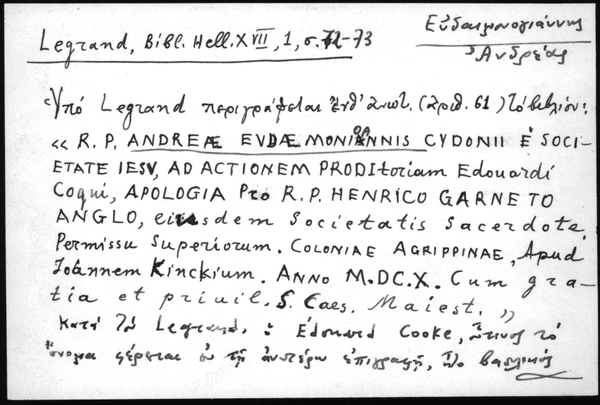 Legrand, Bibl. Hell. XVII, 1, σ. 72-73
Εὐδαιμονογιάννης
Ἀνδρέας
Ὑπό Legrand περιγράφεται ἐνθ' ἀνωτ. (ἀριθ. 61) τό βιβλίον:
« R. P. ANDREÆ EVDÆMONIOANNIS CYDONII È SOCI-
ETATE IESV, AD ACTIONEM PRODItoriam Edouardi
Coqui, APOLOGIA Pro R. P. HENRICO GARNETO
ANGLO, eiusdem Societatis Sacerdote.
Permissu Superiorum. COLONIAE AGRIPPINAE, Apud
Joannem Kinckium. ANNO M.DC.X. Cum gra-
tia et priuil. S. Caes. Maiest. »
Κατά τόν Legrand, ὁ Édouard Cooke, οὗτινος τό
ὄνομα φέρεται ἐν τῇ ἀνωτέρω ἐπιγραφῇ, ἦτο βασιλικός